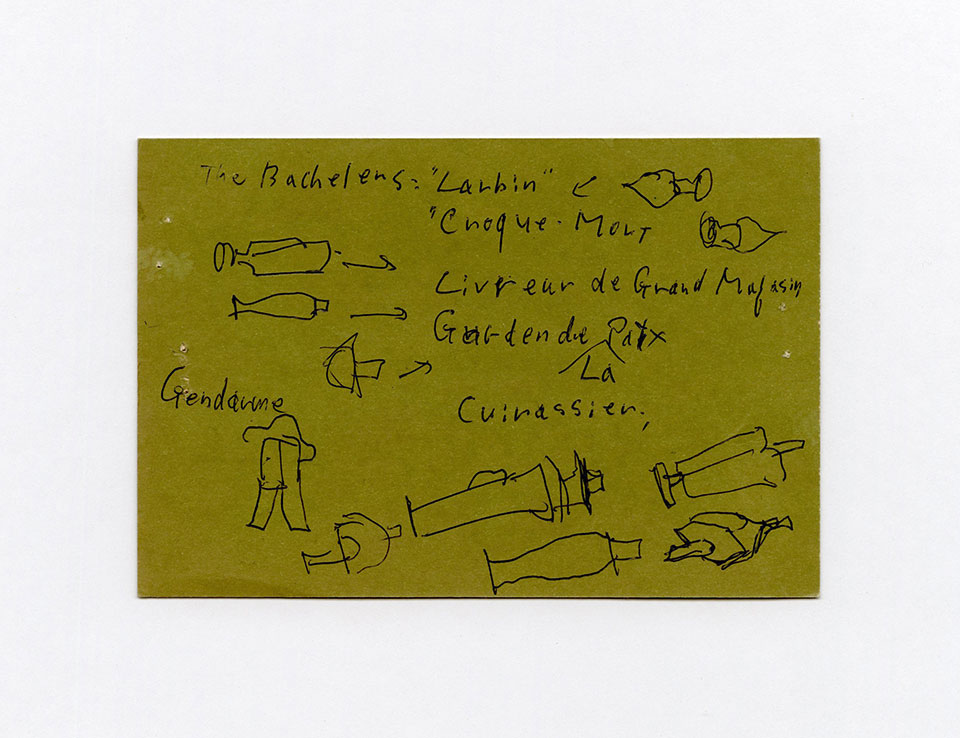 The Bachelers: "Larbin"
"Croque-Mort
Livreur de Grand Magasin
Gardende Paix
La
Gendarme
Cuirassier,